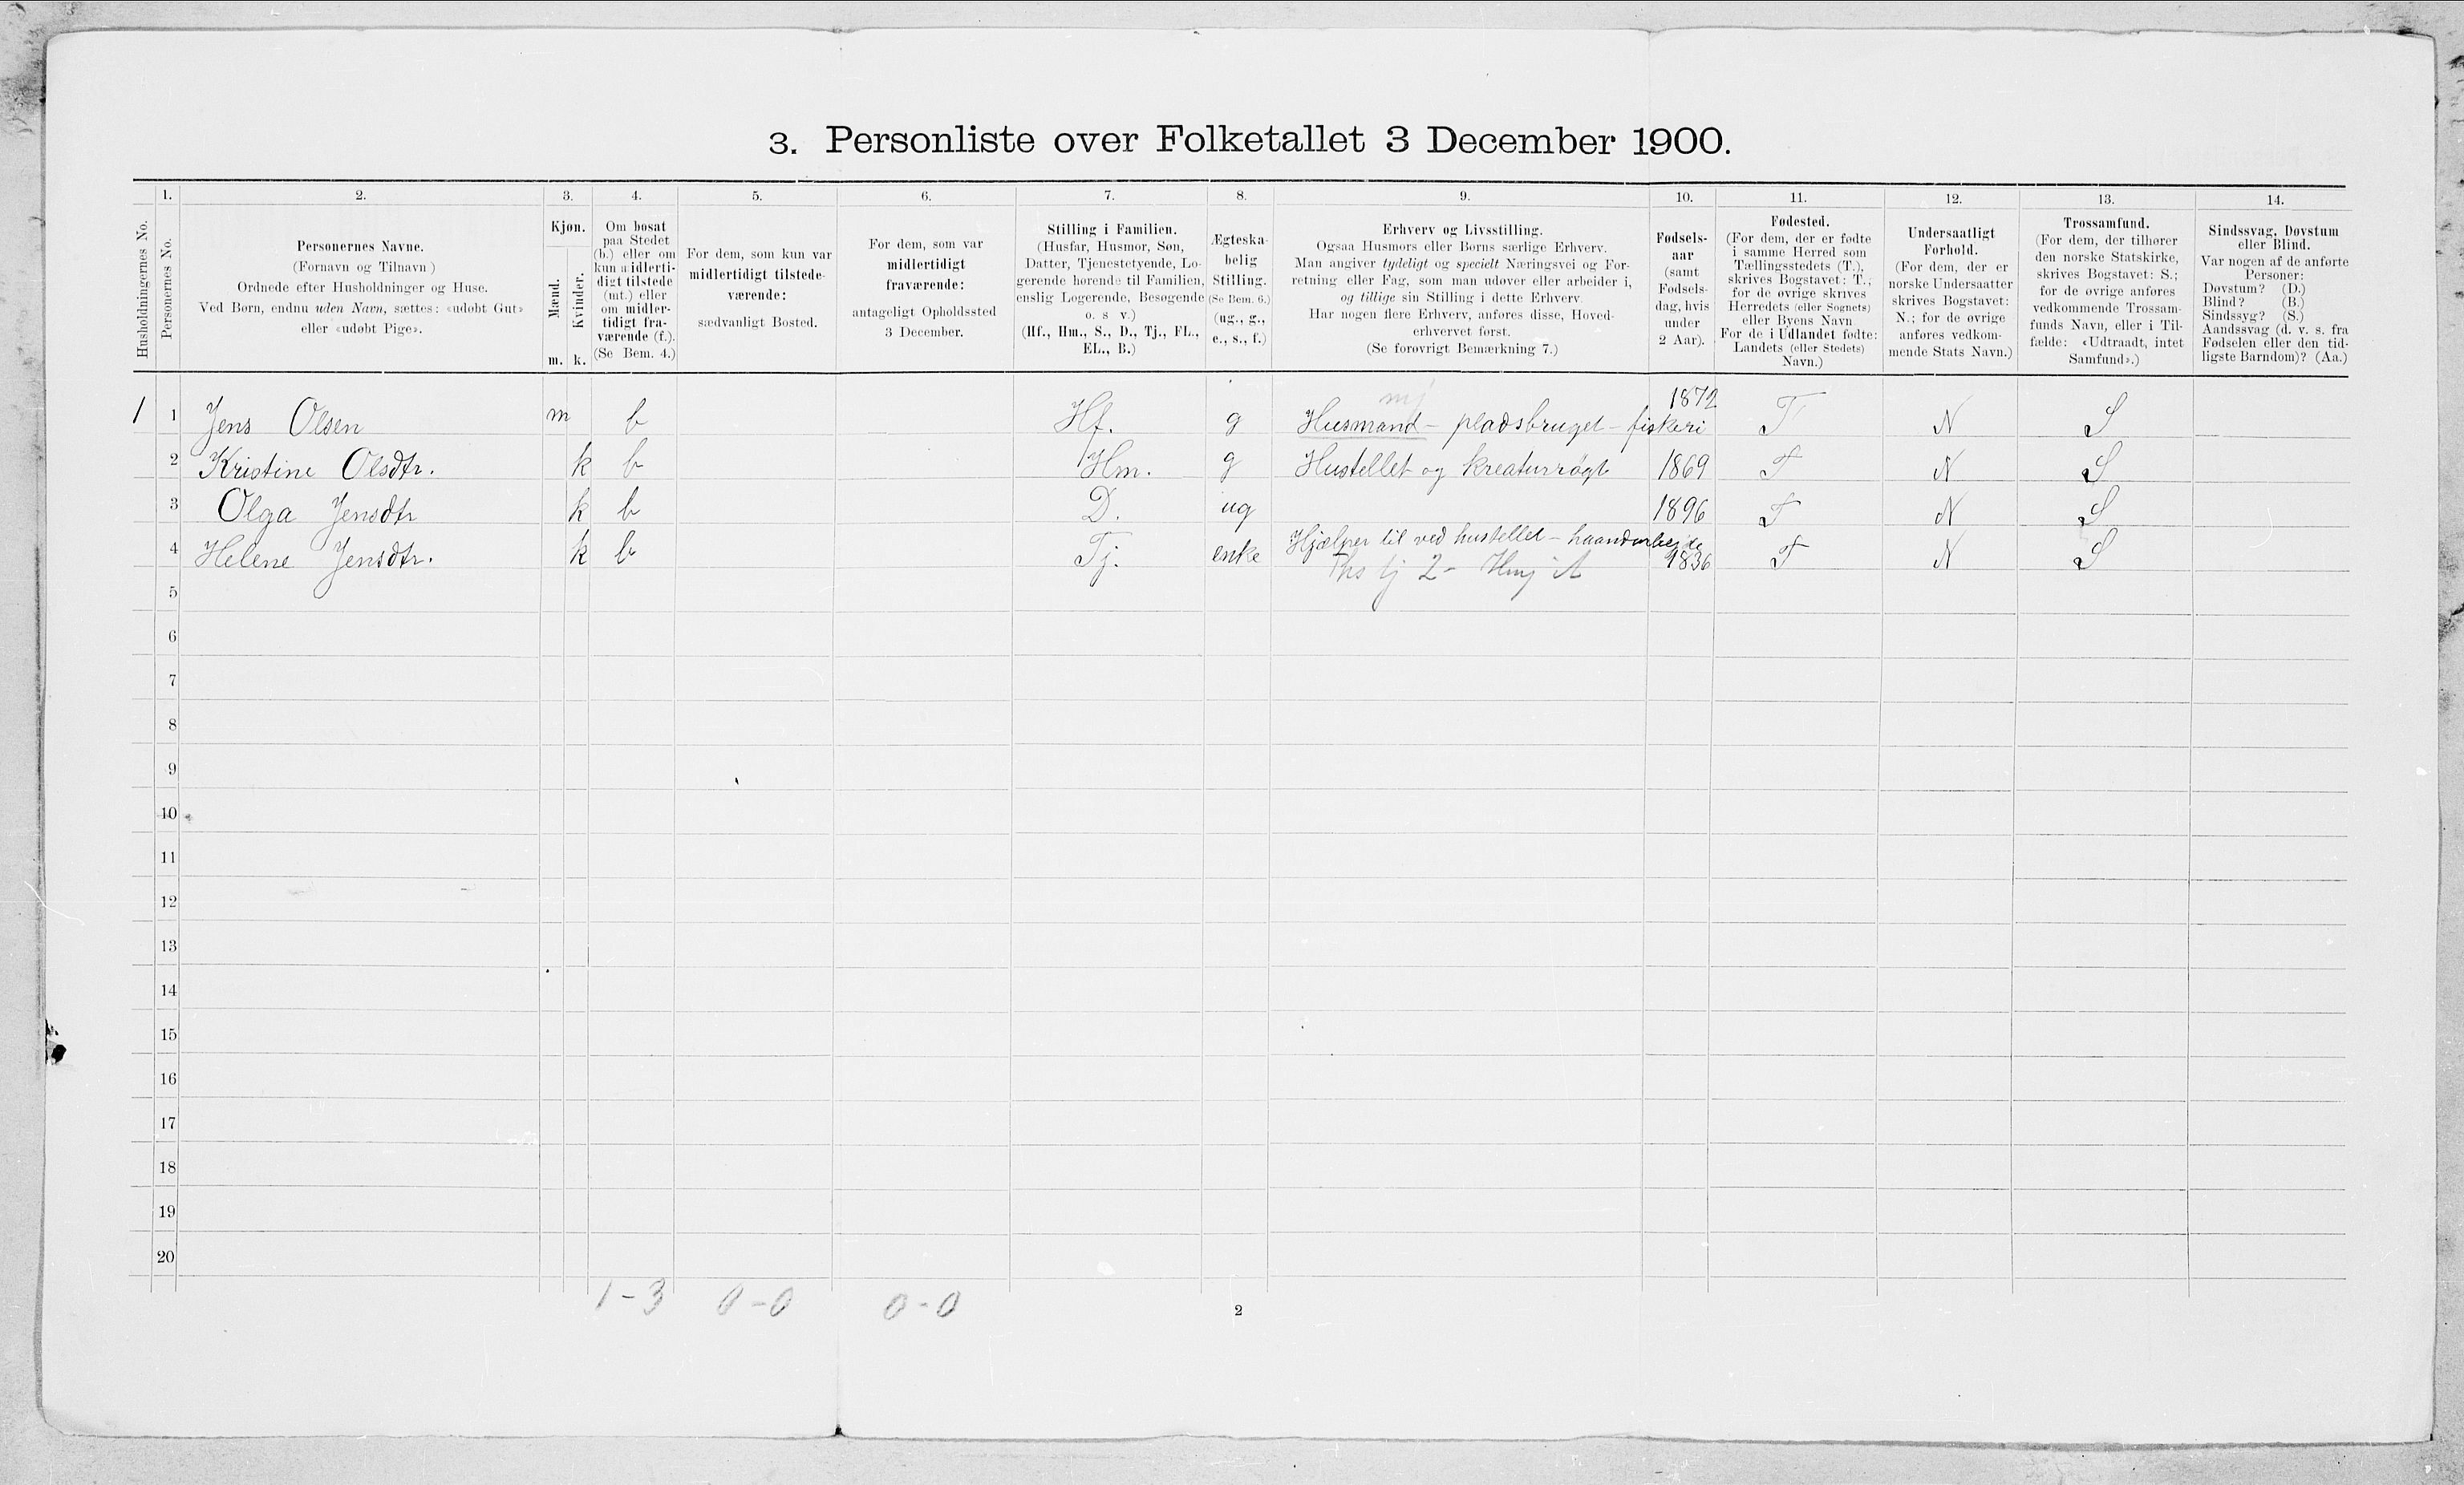 3. Personliste over Folketallet 3 December 1900.
1. 2. 3. 4. 5. 6. 7. 8. 9. 10. 11. 12. 13. 14.
Husholdningernes No.
Personernes No.
Personernes Navne.
(Fornavn og Tilnavn)
Ordnede efter Husholdninger og Huse.
Ved Børn, endnu uden Navn, sættes: «udøbt Gut»
eller «udøbt Pige».
Kjøn.
Mænd.
Kvinder.
m. k.
Om bosat
paa Stedet
(b.) eller om
kun midlerti-
digt tilstede
(mt.) eller
om midler-
tidigt fra-
værende (f.).
(Se Bem. 4.)
For dem, som kun var
midlertidigt tilstede-
værende:
sædvanligt Bosted.
For dem, som var
midlertidigt
fraværende:
antageligt Opholdssted
3 December.
Stilling i Familien.
(Husfar, Husmor, Søn,
Datter, Tjenestetyende, Lo-
gerende hørende til Familien,
enslig Logerende, Besøgende
o. s v.)
(Hf., Hm., S., D., Tj., FL.,
EL., B.)
Ægteska-
belig
Stilling.
(Se Bem. 6.)
(ug., g.,
e., s., f.)
Erhverv og Livsstilling.
Ogsaa Husmors eller Børns særlige Erhverv.
Man angiver tydeligt og specielt Næringsvei og For-
retning eller Fag, som man udøver eller arbeider i,
og tillige sin Stilling i dette Erhverv.
Har nogen flere Erhverv, anføres disse, Hoved-
erhvervet først.
(Se forøvrigt Bemærkning 7.)
Fødsels-
aar
(samt
Fødsels-
dag, hvis
under
2 Aar).
Fødested.
(For dem, der er fødte
i samme Herred som
Tællingsstedets (T.),
skrives Bogstavet: T.;
for de øvrige skrives
Herredets (eller Sognets)
eller Byens Navn.
For de i Udlandet fødte:
Landets (eller Stedets)
Navn.)
Undersaatligt
Forhold.
(For dem, der er
norske Undersaatter
skrives Bogstavet:
N.; for de øvrige
anføres vedkom-
mende Stats Navn.)
Trossamfund.
(For dem, der tilhører
den norske Statskirke,
skrives Bogstavet: S.;
for de øvrige anføres
vedkommende Trossam-
funds Navn, eller i Til-
fælde: «Udtraadt, intet
Samfund».)
Sindssvag, Døvstum
eller Blind.
Var nogen af de anførte
Personer:
Døvstum? (D.)
Blind? (B.)
Sindssyg? (S.)
Aandssvag (d. v. s. fra
Fødselen eller den tid-
ligste Barndom)? (Aa.)
1 1 Jens Olsen m b Hf. g Husmand - pladsbruget - fiskeri 1872 T N S
2 Kristine Olsdtr. k b Hm. g Hustellet og kreaturrøgt 1869 T N S
3 Olga Jensdtr k b D. ug 1896 T N S
4 Helene Jensdtr. k b Tj. enke Hjælper til ved hustellet - haandarbejde 1836 T N S
tj 2 -
5
6
7
8
9
10
11
12
13
14
15
16
17
18
19
20
1-3 0-0 0-0
2